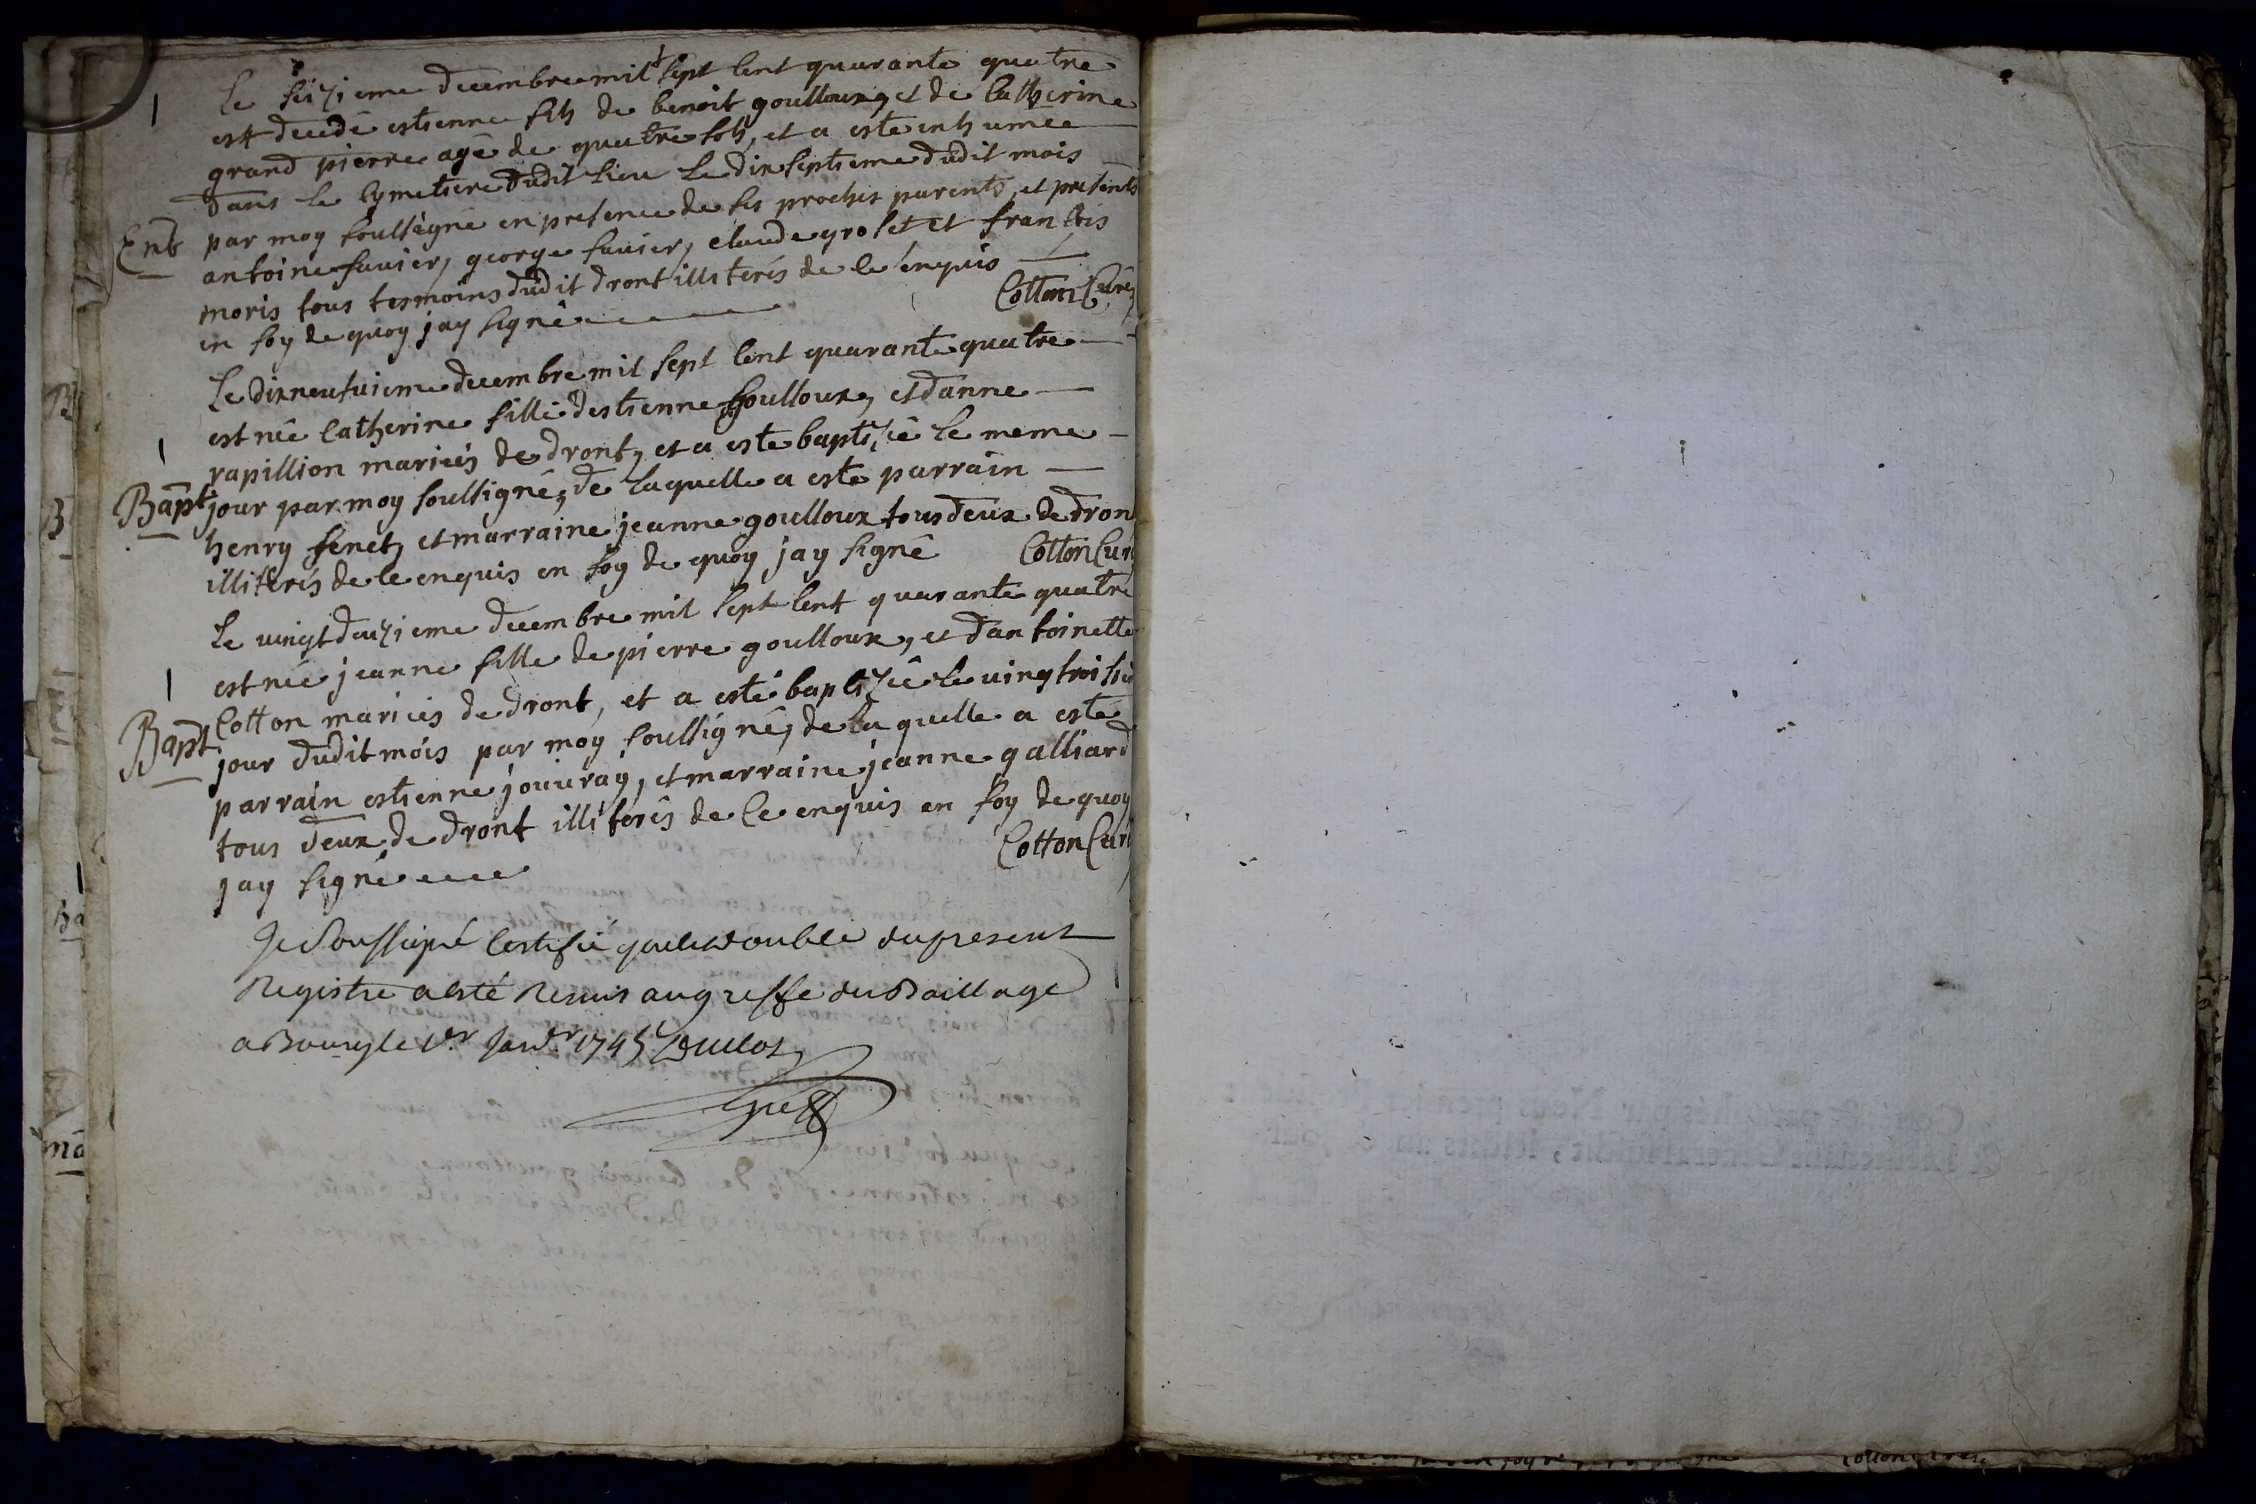 Le seizieme decembre mil sept cent quarante quatre
est decedé estienne fils de benoit goulloux, et de Catherine
grand pierre agé de quatre sols, et a esté enhumée
dans le Cymetiere dudit lieu le dix septieme dudit mois
Ent
par moy soussigné en presence de ses proches parents, et presents
antoine favier, george favier, claude grolet et francois
moris tous tesmoins dudit dront illiterés de ce enquis
en foy de quoy jay signé
Cotton Curé
Le dixneufuieme decembre mil sept cent quarante quatre
est née Catherine fille destienne goulloux, et danne
rapillion mariés de dront, et a esté baptizée le meme
Bapt
jour par moy soussigné, de laquelle a esté parrain
henry fenet, et marraine jeanne goulloux tous deux de dron
illiterés de ce enquis en foy de quoy jay signé
Cotton Cur
Le vingt deuzieme decembre mil sept cent quarante quatre
est née jeanne fille de pierre goulloux, et dantoinette
Cotton mariés de dront, et a esté baptizée le vingtroisie
Bapt
jour dudit mois par moy soussigné, de laquelle a esté
parrain estienne jouvray, et marraine jeanne galliard
tous deux de dront illiterés de ce enquis en foy de quoy
jay signé
Cotton Cur
Je Soussigné Certifie que le double du present
Registre a esté Remis au greffe du Baillage
a Bourg le 1er Janvr 1745 Duclos
Greff